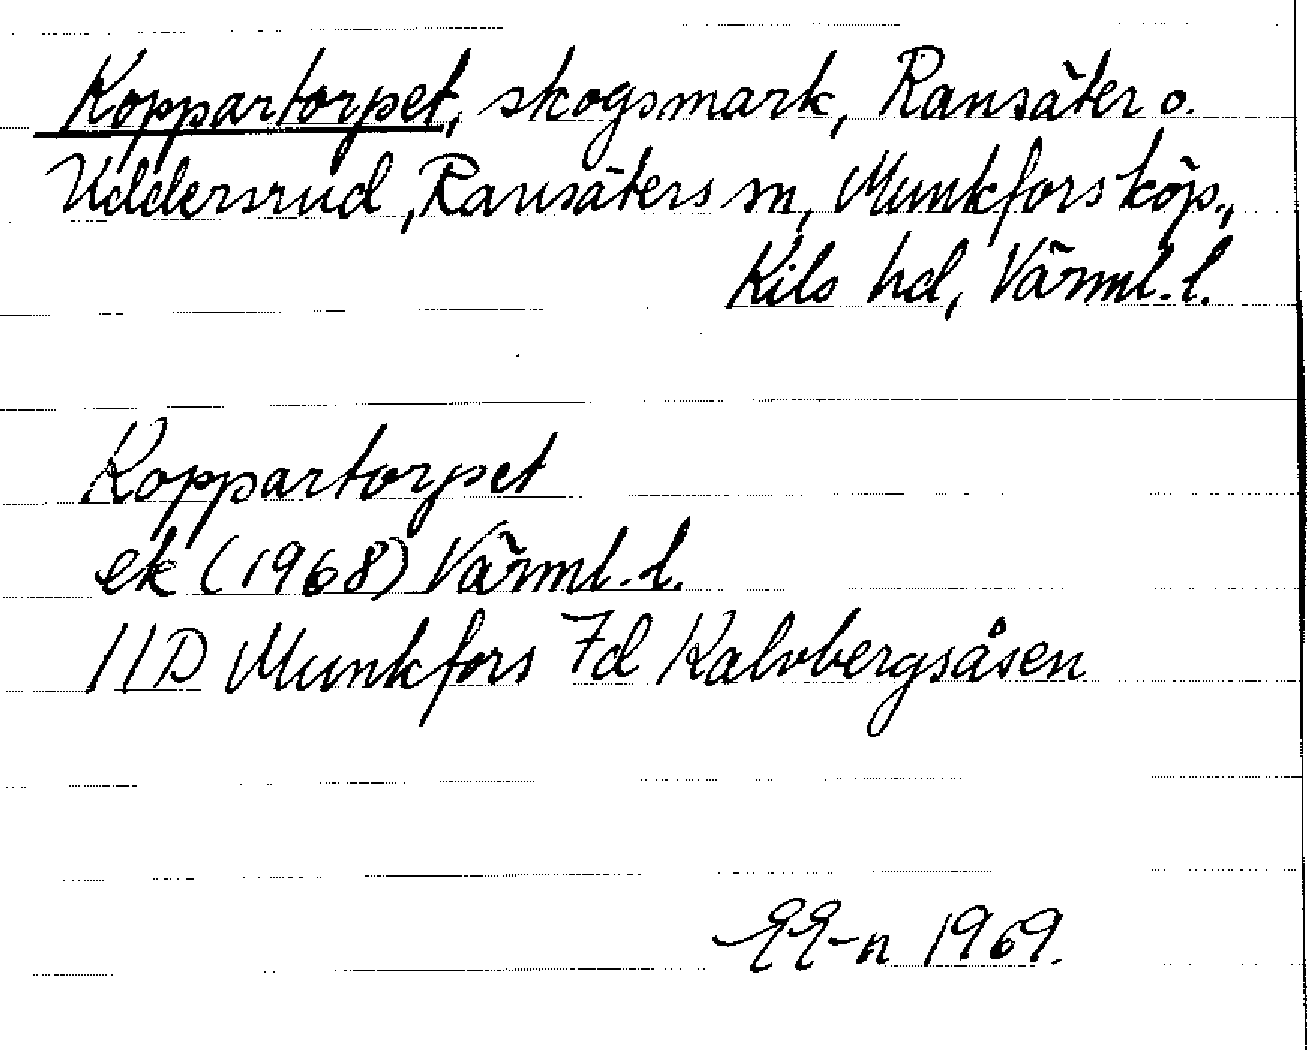 Koppartorpet, skogsmark, Ransäter o.
Uddersrud, Ransäters sn, Munkfors köp.,
Kils hd, Värml. l.
Koppartorpet
ek (1968) Värml. l.
11D Munkfors 7d Kalvbergsåsen
EE-n 1969.